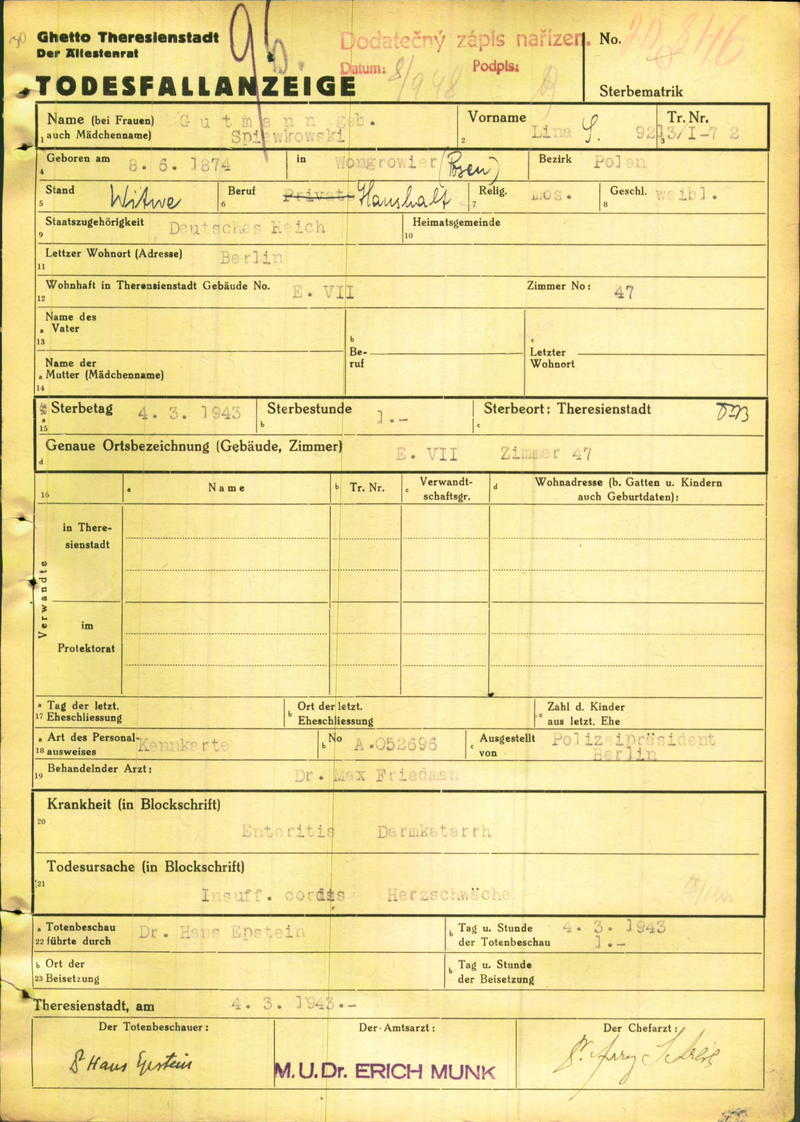 Ghetto Theresienstadt
Der Ältestenrat
TODESFALLANZEIGE
96.
Dodatečný zápis nařízen.
Datum: 8/948 Podpis:
No.
Sterbematrik
Name (bei Frauen) Gutmann geb.
1 auch Mädchenname) Spiewkowski
Vorname
2 Lina S.
Tr. Nr.
3 9213/I-72
Geboren am 8. 6. 1874
4
in Wongrowier (Posen)
Bezirk Polen
Stand Witwe
5
Beruf Privat Haushalt
6
Relig. mos.
7
Geschl. weibl.
8
Staatszugehörigkeit Deutsches Reich
9
Heimatsgemeinde
10
Lettzer Wohnort (Adresse) Berlin
11
Wohnhaft in Therensienstadt Gebäude No. E. VII Zimmer No: 47
12
Name des
a Vater
13
Name der
a Mutter (Mädchenname)
14
b
Be-
ruf
c
Letzter
Wohnort
Sterbetag 4. 3. 1943
a
15
Sterbestunde 1.-
b
Sterbeort: Theresienstadt
c
Genaue Ortsbezeichnung (Gebäude, Zimmer) E. VII Zimmer 47
d
16
a Name
b Tr. Nr.
c Verwandt-
schaftsgr.
d Wohnadresse (b. Gatten u. Kindern
auch Geburtdaten):
Verwandte
in There-
sienstadt
im
Protektorat
a Tag der letzt.
17 Eheschliessung
b Ort der letzt.
Eheschliessung
c Zahl d. Kinder
aus letzt. Ehe
a Art des Personal-
18 ausweises Kennkarte
b No A.052696
c Ausgestellt
von Polizeipräsident
Berlin
Behandelnder Arzt:
19 Dr. Max Friedman
Krankheit (in Blockschrift)
20
Enteritis Darmkatarrh
Todesursache (in Blockschrift)
21
Insuff. cordis Herzschwäche
a Totenbeschau
22 führte durch Dr. Hans Epstein
b Tag u. Stunde
der Totenbeschau 4. 3. 1943
1.-
b Ort der
23 Beisetzung
b Tag u. Stunde
der Beisetzung
Theresienstadt, am 4. 3. 1943.-
Der Totenbeschauer:
Dr Hans Epstein
Der Amtsarzt:
M. U. Dr. ERICH MUNK
Der Chefarzt: